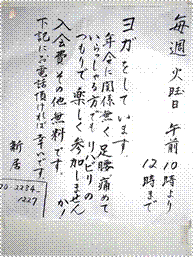 毎週火曜日 午前10時より
12時まで
ヨガをしています。
年令に関係無く足腰痛めて
いらっしゃる方でもリハビリの
つもりで楽しく参加しません
か?
入会費その他無料です。
下記にお電話頂ければ幸いです。
新居
70-2284-
1227